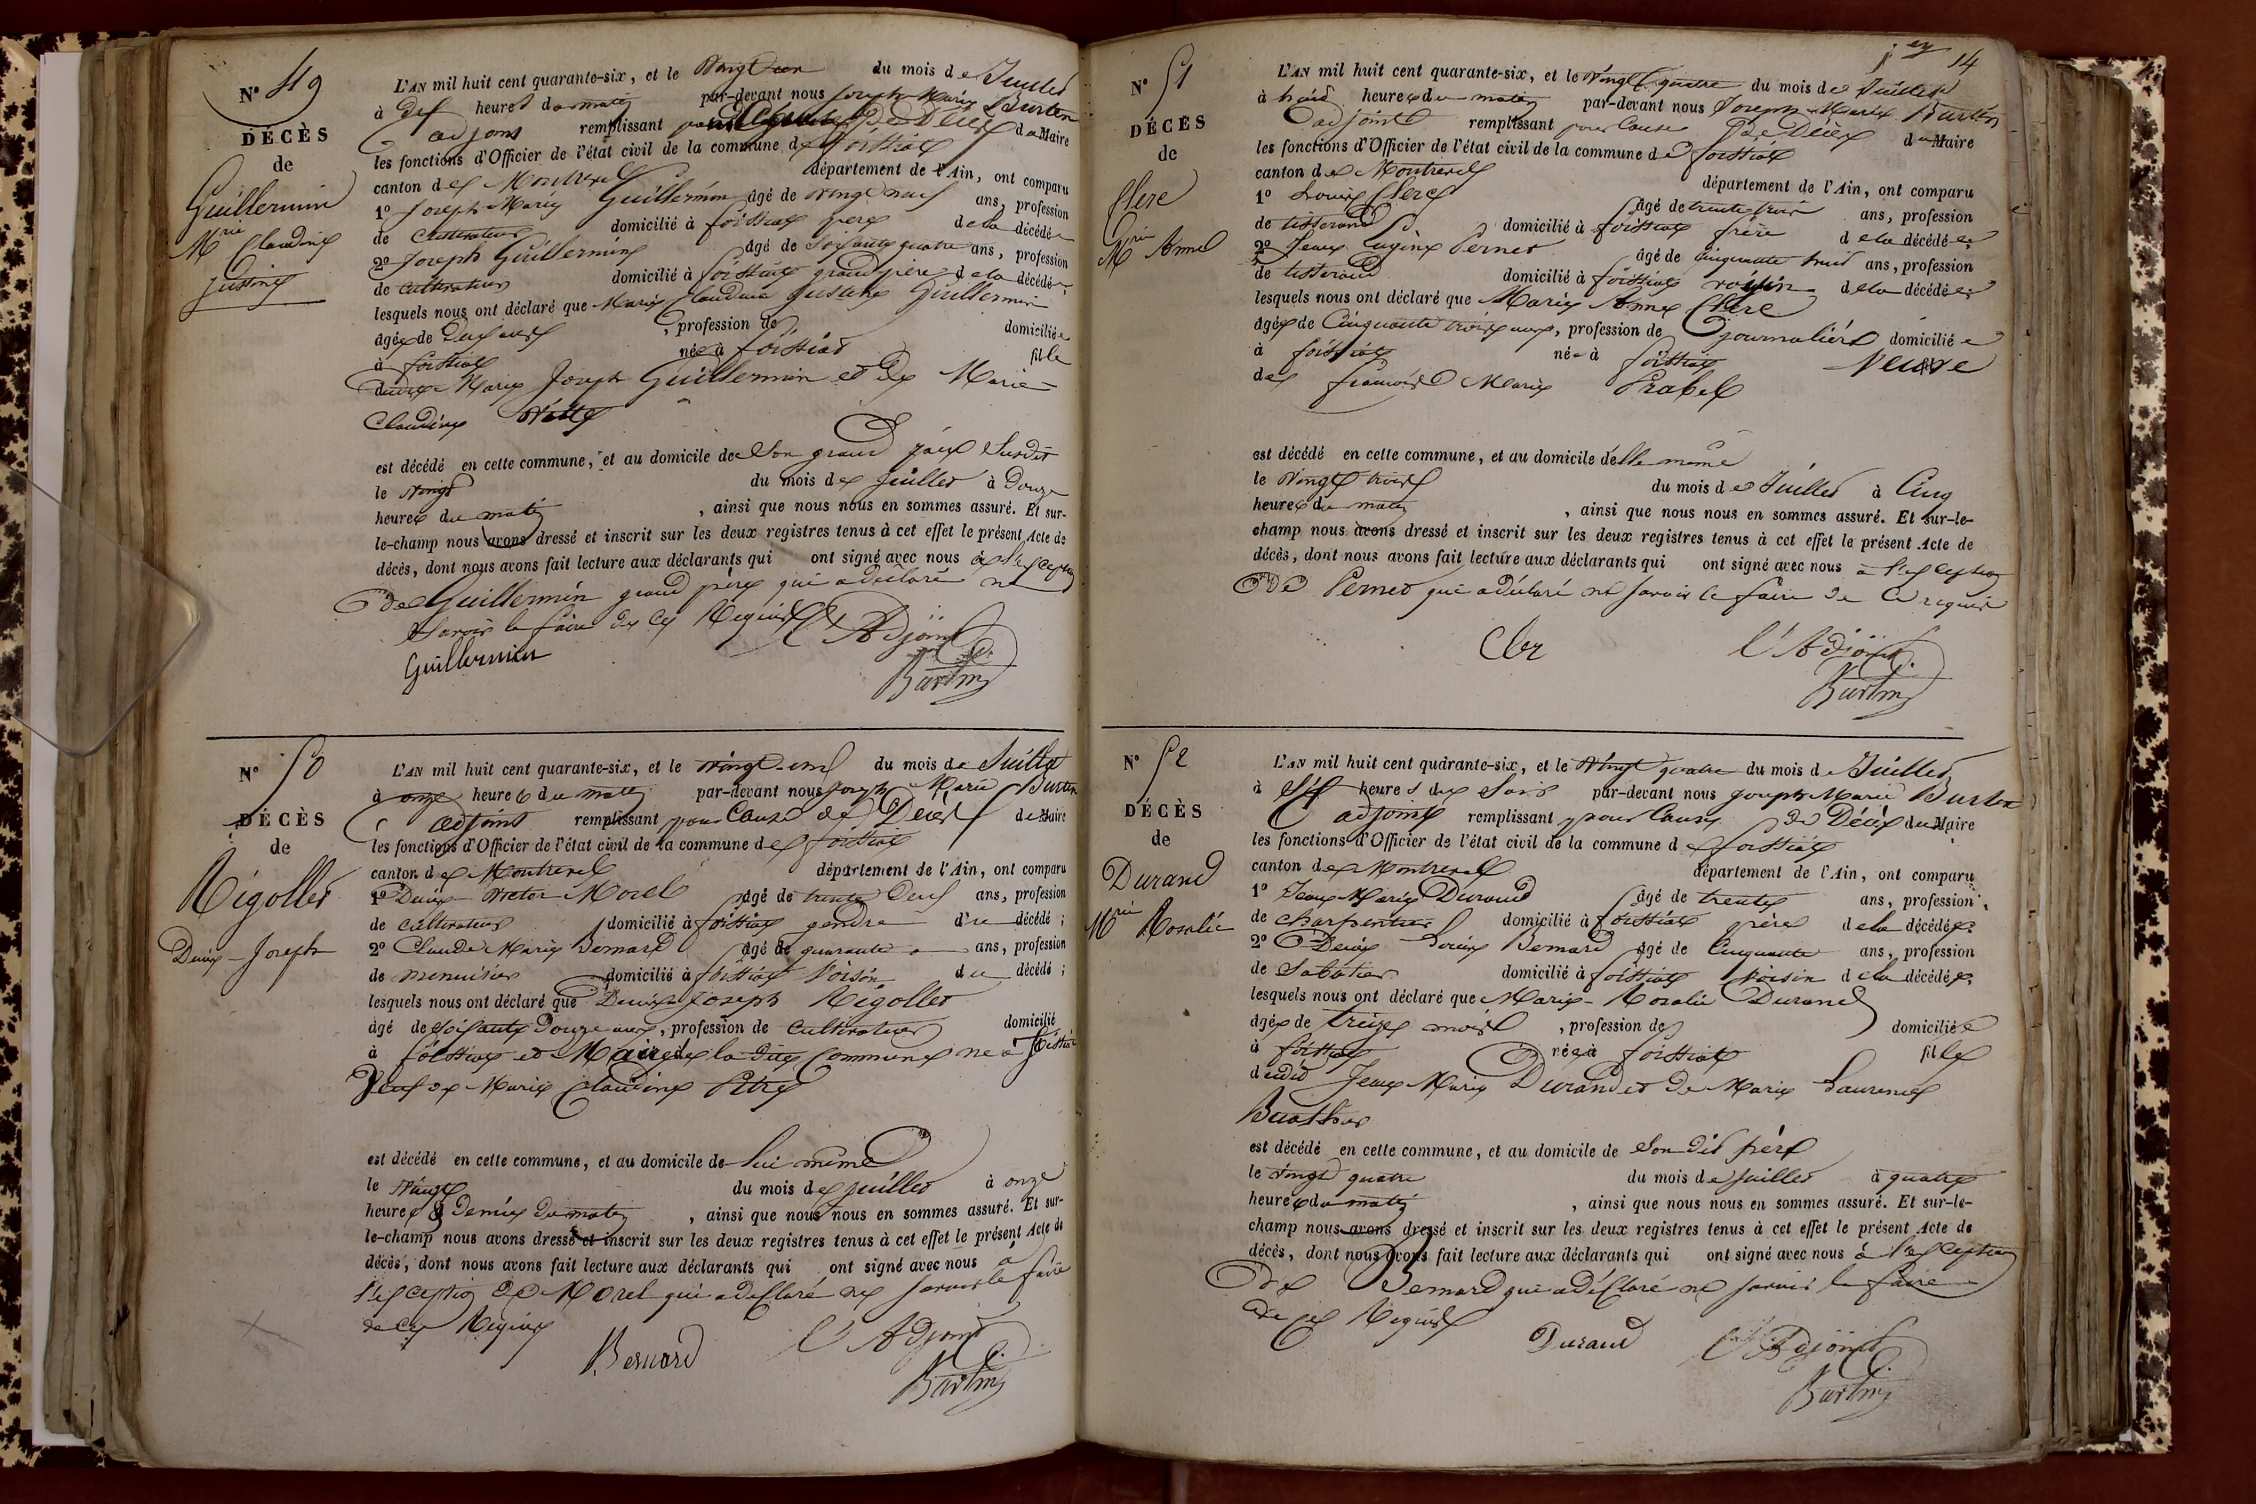 N° 49
DÉCÈS
de
Guillermin
Mrie Claudine
Justine
L'AN mil huit cent quarante-six, et le Vingt un du mois de Juillet
à dix heures du matin par-devant nous Joseph Marie Burtin
adjoint remplissant pour Cause de Décès du Maire
les fonctions d'Officier de l'état civil de la commune de foissiat
canton de Montrevel département de l'Ain, ont comparu
1° Joseph Marie Guillermin âgé de vingt neuf ans, profession
de cultivateur domicilié à foissiat père de la décédée
2° Joseph Guillermin âgé de soixante quatre ans, profession
de cultivateur domicilié à foissiat grand père de la décédée ;
lesquels nous ont déclaré que Marie Claudine Justine Guillermin
âgée de deux ans , profession de domiciliée
à foissiat née à foissiat fille
dudit Marie Joseph Guillermin et de Marie
Claudine
est décédé en cette commune, et au domicile de Son grand père Susdit
le vingt du mois de juillet à Douze
heures du matin , ainsi que nous nous en sommes assuré. Et sur-
le-champ nous avons dressé et inscrit sur les deux registres tenus à cet effet le présent Acte de
décès, dont nous avons fait lecture aux déclarants qui ont signé avec nous à l'exception
de Guillermin grand père qui a déclaré ne
Savoir le faire de ce Requis L'Adjoint
Guillermin Burtin
N° 50
DÉCÈS
de
Rigollet
Denis Joseph
L'AN mil huit cent quarante-six, et le vingt-un du mois de Juillet
à onze heures du matin par-devant nous Joseph Marie Burtin
adjoint remplissant pour Cause de Décès du Maire
les fonctions d'Officier de l'état civil de la commune de foissiat
canton de Montrevel département de l'Ain, ont comparu
1° Denis Victor Morel âgé de trente Deux ans, profession
de cultivateur domicilié à foissiat gendre du décédé ;
2° Claude Marie Bernard âgé de quarante ans, profession
de menuisier domicilié à foissiat Voisin du décédé ;
lesquels nous ont déclaré que Denis Joseph Rigollet
âgé de soixante Douze ans , profession de cultivateur domicilié
à foissiat et Maire de la dite Commune né à foissiat
Veuf de Marie Claudine Pitre
est décédé en cette commune, et au domicile de lui même
le vingt du mois de juillet à onze
heures & demie du matin , ainsi que nous nous en sommes assuré. Et sur-
le-champ nous avons dressé et inscrit sur les deux registres tenus à cet effet le présent Acte de
décès, dont nous avons fait lecture aux déclarants qui ont signé avec nous à
l'exception de Morel qui a déclaré ne savoir le faire
de ce Requis
Bernard L'Adjoint
Burtin
14
N° 51
DÉCÈS
de
Clerc
Mrie Anne
L'AN mil huit cent quarante-six, et le vingt quatre du mois de Juillet
à huit heures du matin par-devant nous Joseph Marie Burtin
adjoint remplissant pour Cause de Décès du Maire
les fonctions d'Officier de l'état civil de la commune de foissiat
canton de Montrevel département de l'Ain, ont comparu
1° Louis Clerc âgé de trente trois ans, profession
de tisserand domicilié à foissiat frère de la décédée ;
2° Jean Eugène Pernet âgé de cinquante huit ans, profession
de tisserand domicilié à foissiat voisin de la décédée ;
lesquels nous ont déclaré que Marie Anne Clerc
âgée de Cinquante trois ans , profession de journalière domiciliée
à foissiat née à foissiat Veuve
de françois Marie Prabel
est décédé en cette commune, et au domicile d'elle même
le vingt trois du mois de Juillet à Cinq
heures du matin , ainsi que nous nous en sommes assuré. Et sur-le-
champ nous avons dressé et inscrit sur les deux registres tenus à cet effet le présent Acte de
décès, dont nous avons fait lecture aux déclarants qui ont signé avec nous à l'exception
de Pernet qui a déclaré ne savoir le faire de ce requis
Cler L'Adjoint
Burtin
N° 52
DÉCÈS
de
Durand
Mrie Rosalie
L'AN mil huit cent quarante-six, et le vingt quatre du mois de Juillet
à Six heures du Soir par-devant nous Joseph Marie Burtin
adjoint remplissant pour Cause de Décès du Maire
les fonctions d'Officier de l'état civil de la commune de foissiat
canton de Montrevel département de l'Ain, ont comparu
1° Jean Marie Durand âgé de trente ans, profession
de charpentier domicilié à foissiat père de la décédée ;
2° Denis Louis Bernard âgé de Cinquante ans, profession
de Sabotier domicilié à foissiat Voisin de la décédée ;
lesquels nous ont déclaré que Marie Rosalie Durand
âgée de treize mois , profession de domiciliée
à foissiat née à foissiat fille
dudit Jean Marie Durand et de Marie Laurence
est décédé en cette commune, et au domicile de Son Dit père
le vingt quatre du mois de juillet à quatre
heures du matin , ainsi que nous nous en sommes assuré. Et sur-le-
champ nous avons dressé et inscrit sur les deux registres tenus à cet effet le présent Acte de
décès, dont nous avons fait lecture aux déclarants qui ont signé avec nous à l'exception
de Bernard qui a déclaré ne savoir le faire
de ce Requis
Durand L'Adjoint
Burtin